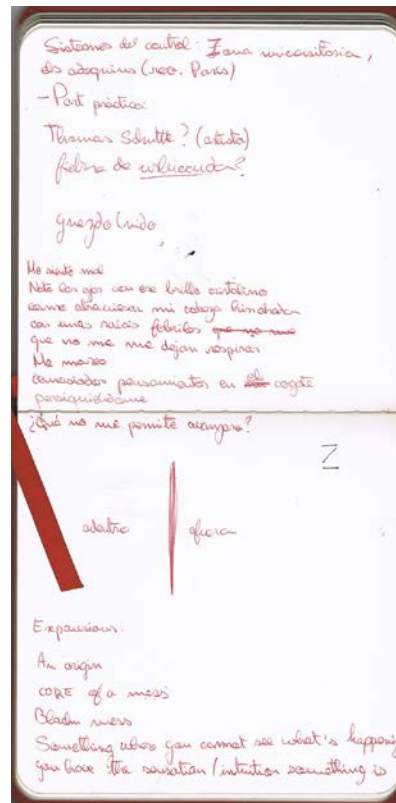 Sistemes del control: Zona universitaria,
els adoquins (rev. París)
- Part pràctica:
Thomas Schütte? (artista)
fiebre de
gnezdo (nido
Me siento mal
Noto los ojos con ese brillo cristalino
como atraviesan mi cabeza hinchada
con unas raíces febriles que no me
que no me me dejan respirar
Me mareo
pensamientos en el cogote
persiguiéndome
¿Qué no me permite avanzar?
Z
adentro afuera
Expansions:
An origin
CORE of a mess
mess
Something where you cannot see what's happening
you have the sensation / intuition something is